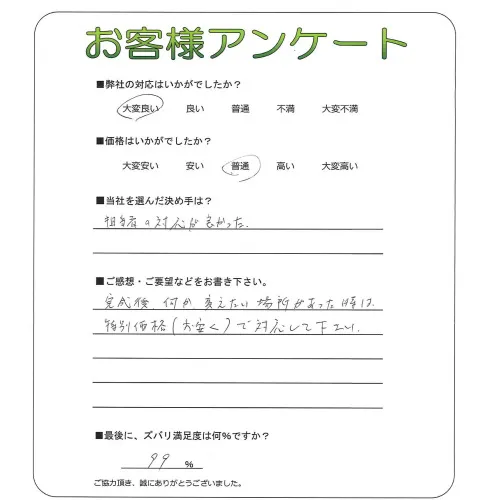 お客様アンケート
■弊社の対応はいかがでしたか?
大変良い 良い 普通 不満 大変不満
■価格はいかがでしたか?
大変安い 安い 普通 高い 大変高い
■当社を選んだ決め手は?
担当者の対応が良かった.
■ご感想・ご要望などをお書き下さい。
完成後、何か変えたい場所があった時は、
特別価格(お安く)で対応して下さい.
■最後に、ズバリ満足度は何%ですか?
99 %
ご協力頂き、誠にありがとうございました。